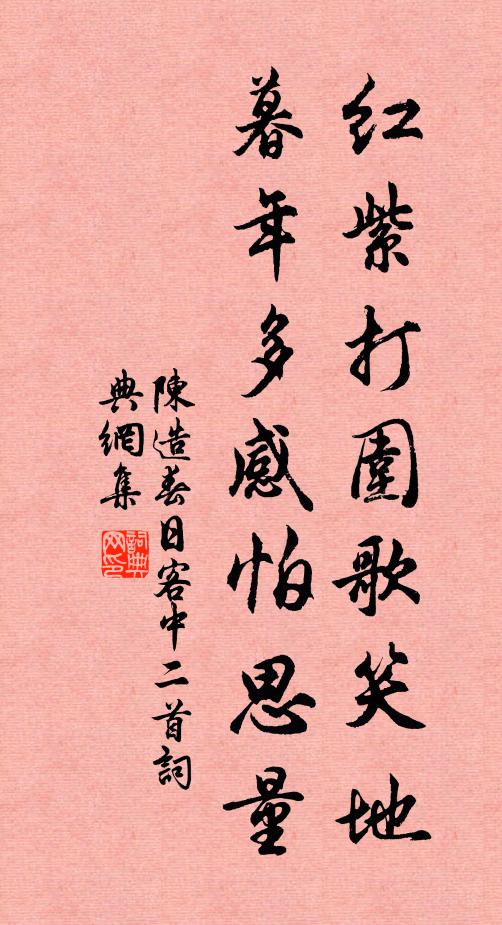 红紫打圍歌笑地
暮年多感怕思量
陳造春日客中二首詞
典網集
詞典
网印